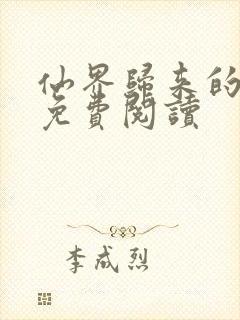 仙界歸來的
免費閱讀
李成烈